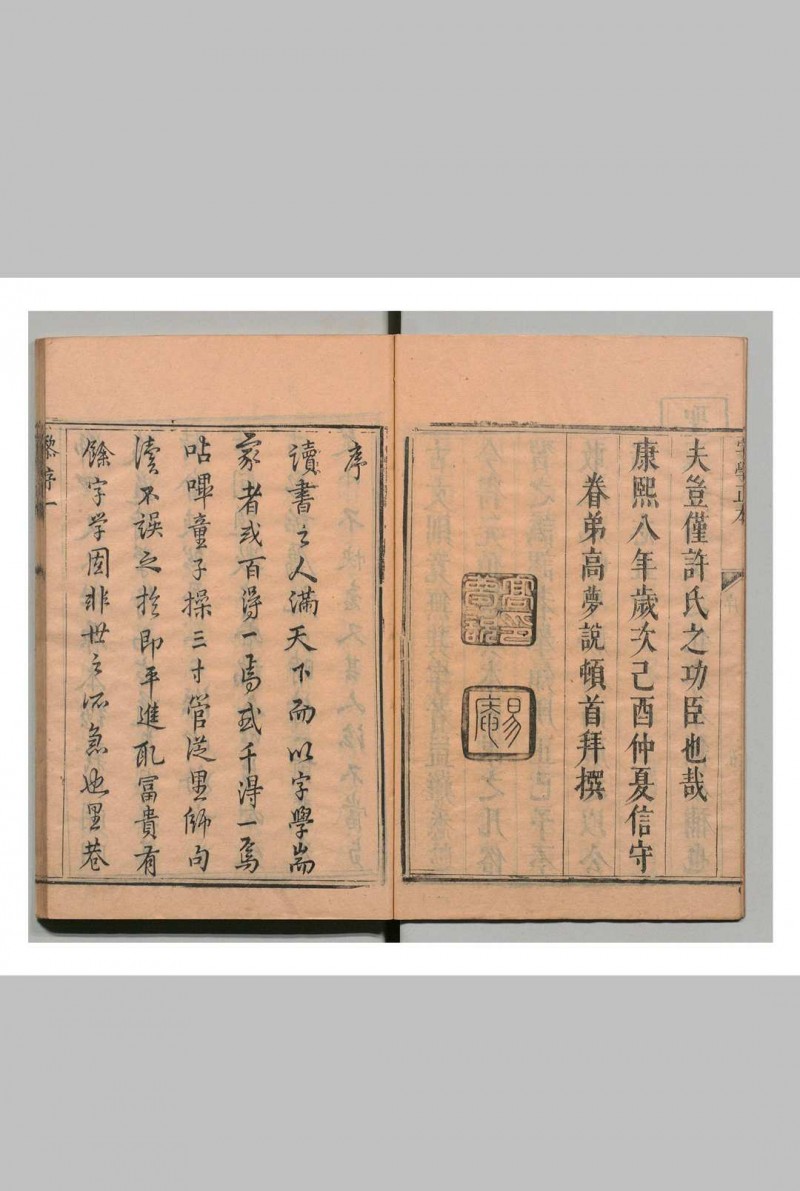 字學正本
夫豈僅許氏之功臣也哉
康熙八年歲次己酉仲夏信守
眷弟高夢說頓首拜撰
高夢說印
易菴
序
讀書之人滿天下而以字學耑
家者或百得一焉或千得一焉
呫嗶童子操三寸管從里師句
讀不誤之於即平進取冨貴有
餘字学固非世之所急也里巷
黎序一